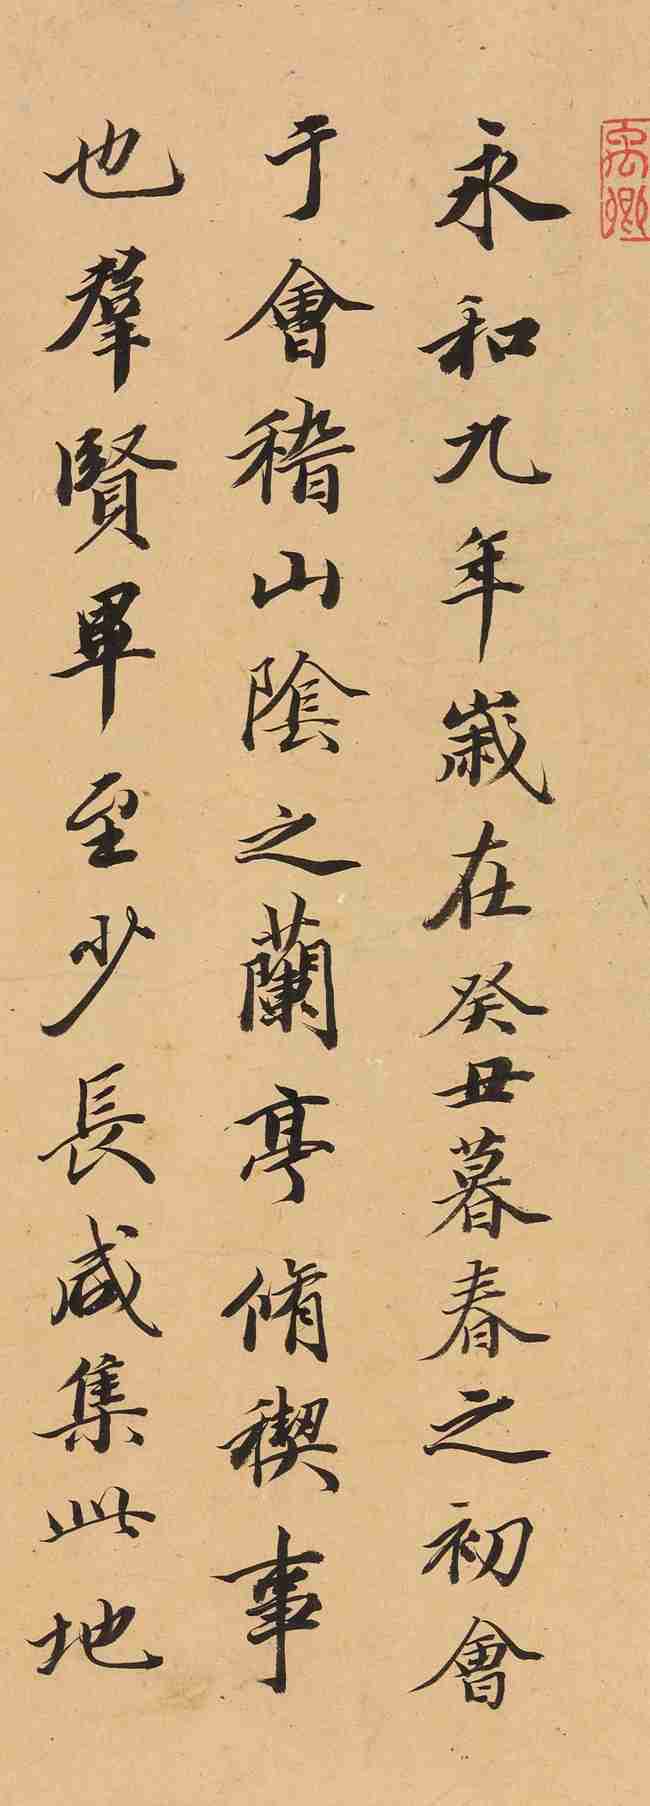 禹卿
永和九年歲在癸丑暮春之初會
于會稽山陰之蘭亭脩稧事
也羣賢畢至少長咸集此地